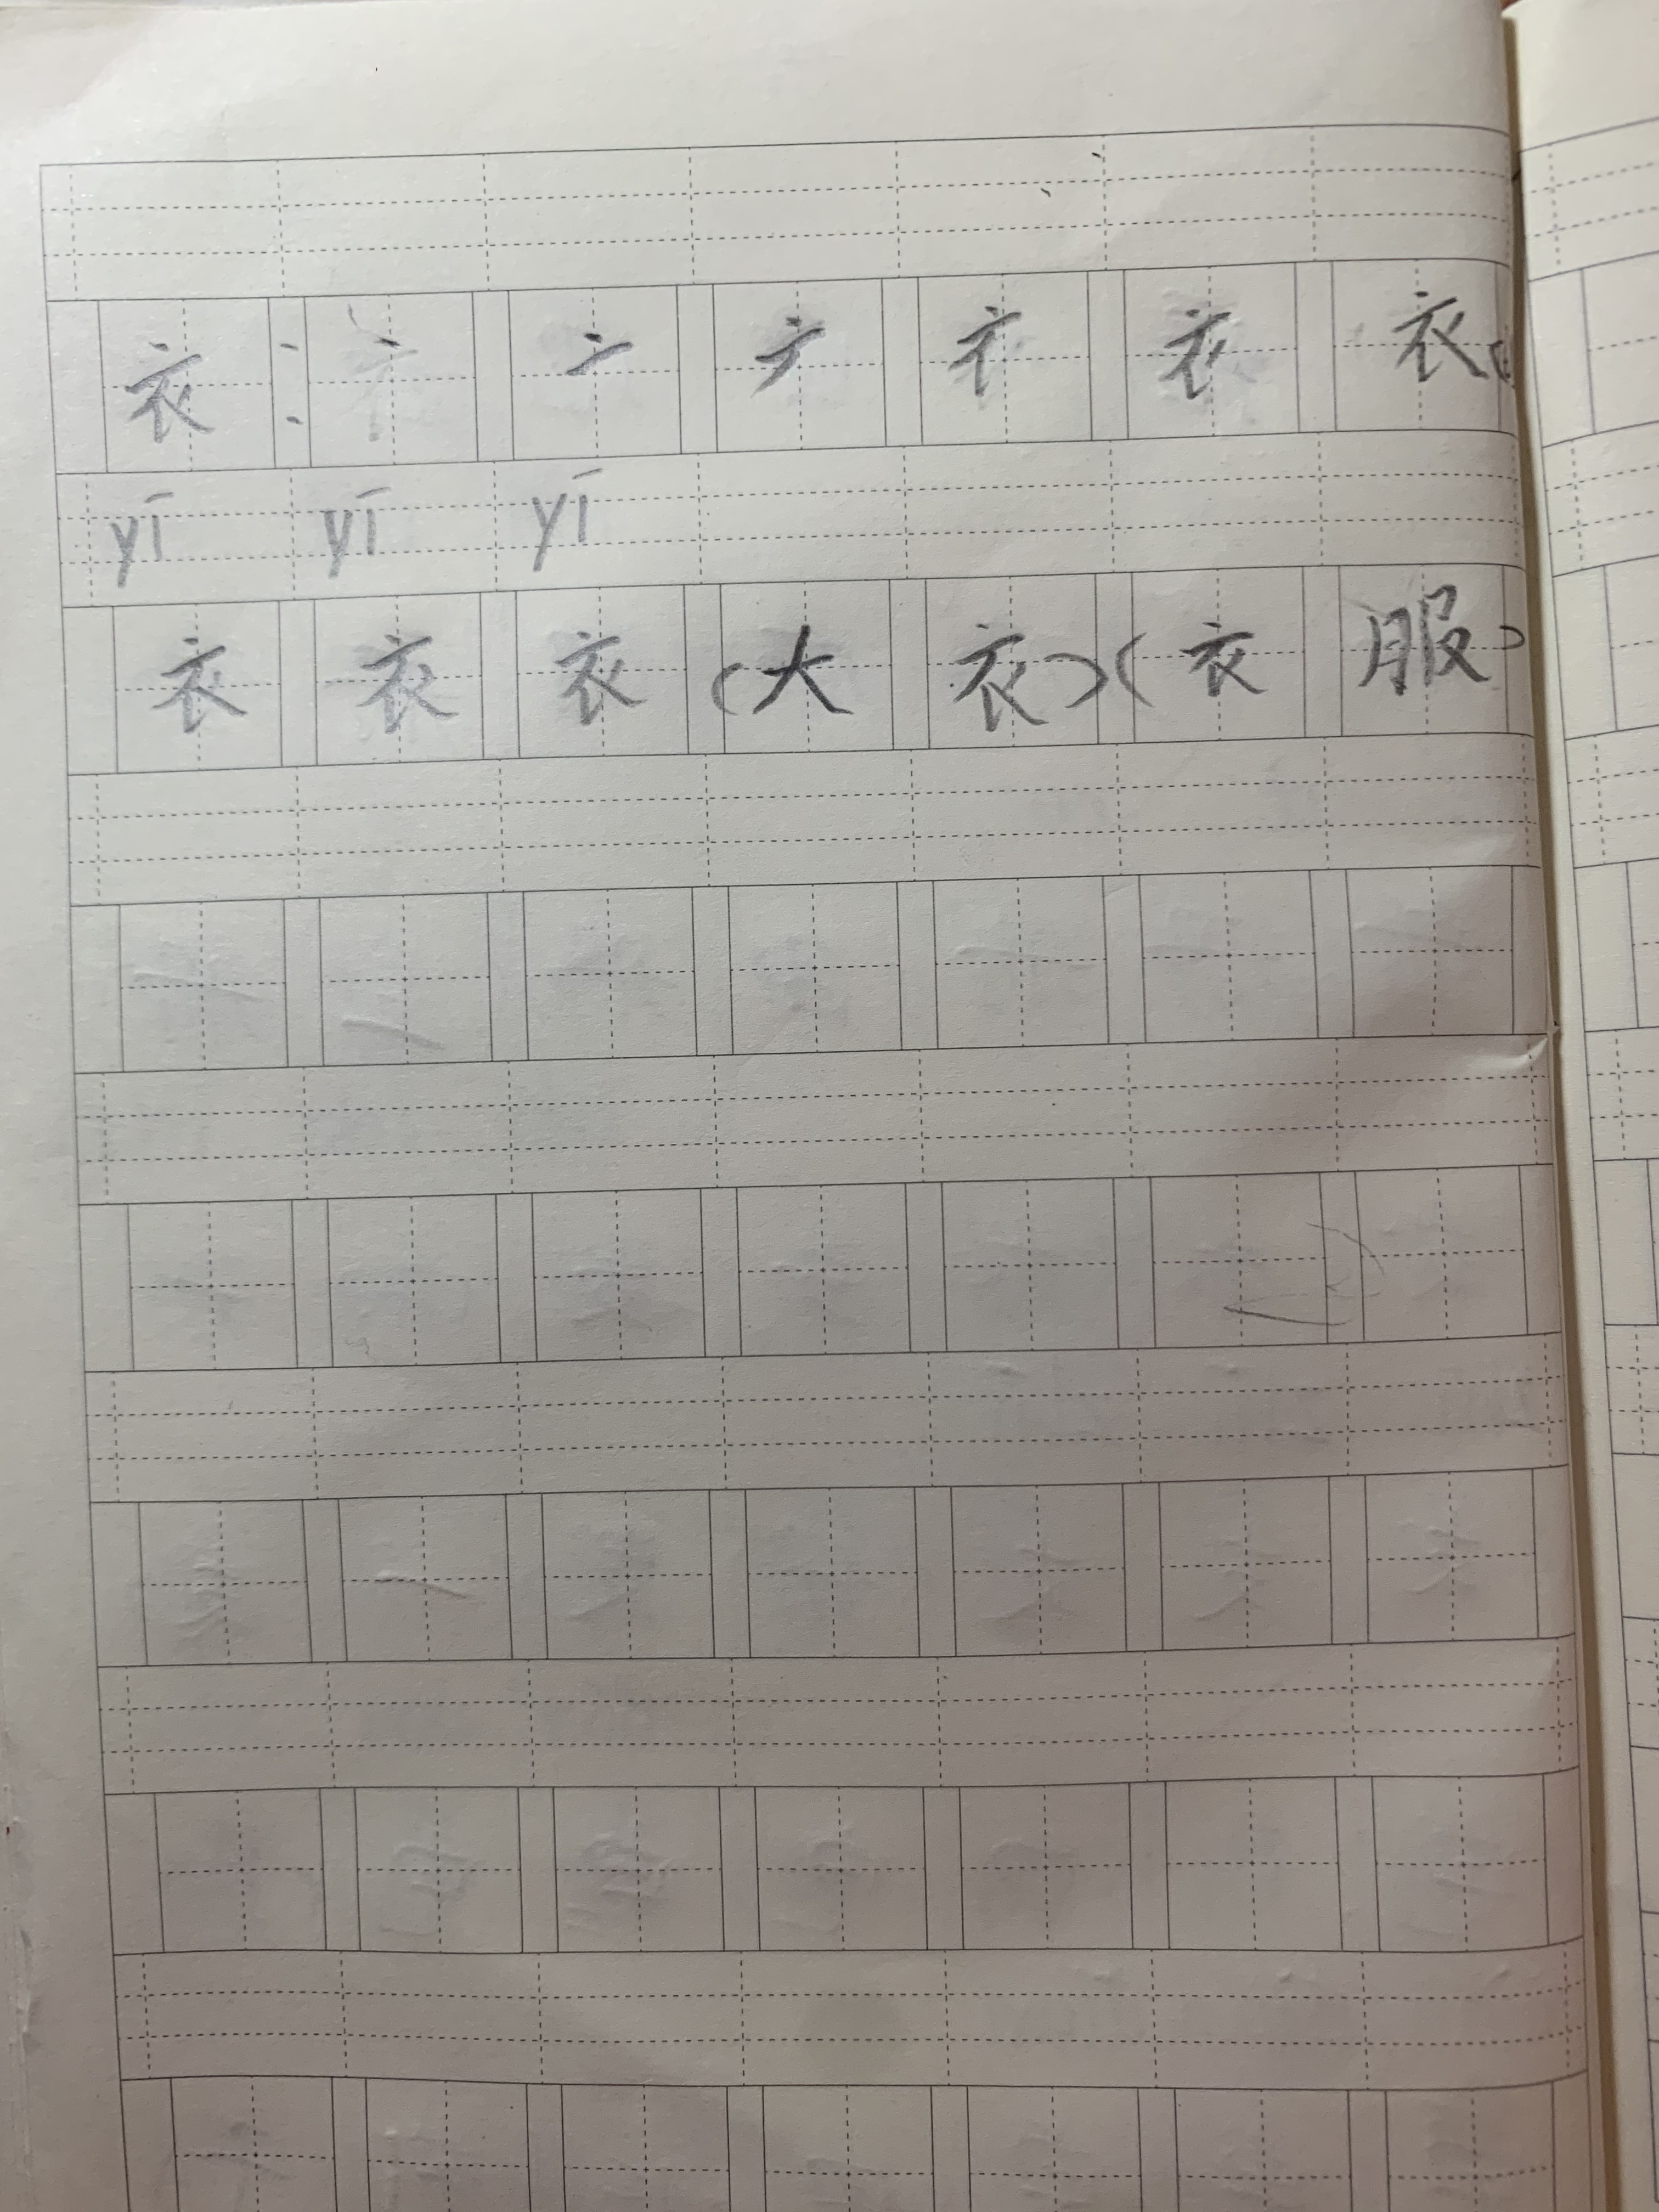 衣：丶亠ナ衣衣衣。
yī yī yī
衣衣衣（大衣）（衣服）